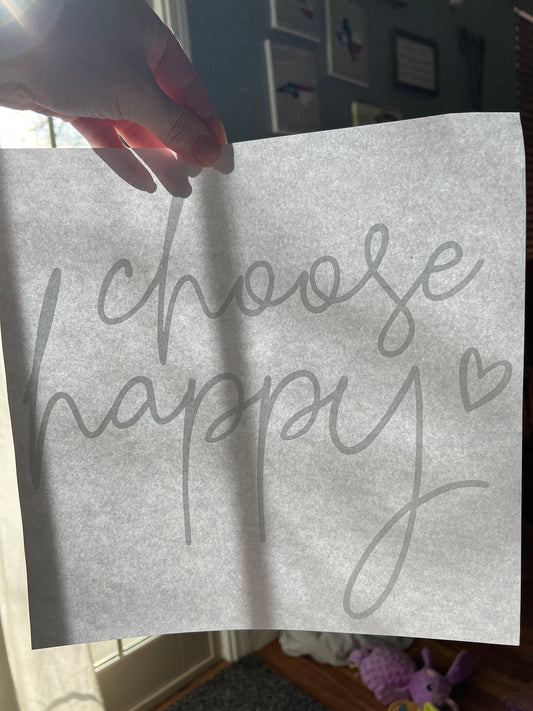 choose
happy